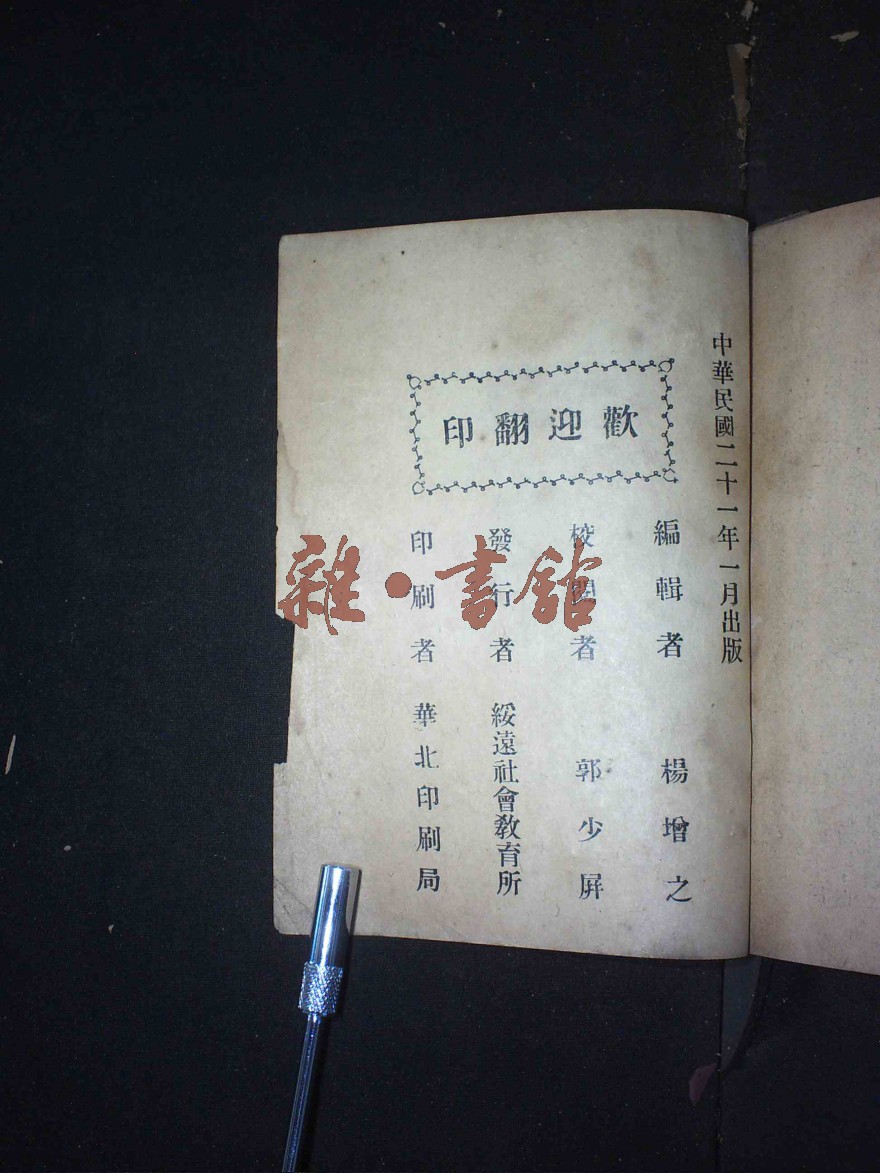 中華民國二十一年一月出版
歡迎翻印
編輯者 楊增之
校閱者 郭少屏
發行者 綏遠社會教育所
印刷者 華北印刷局
雜·書館